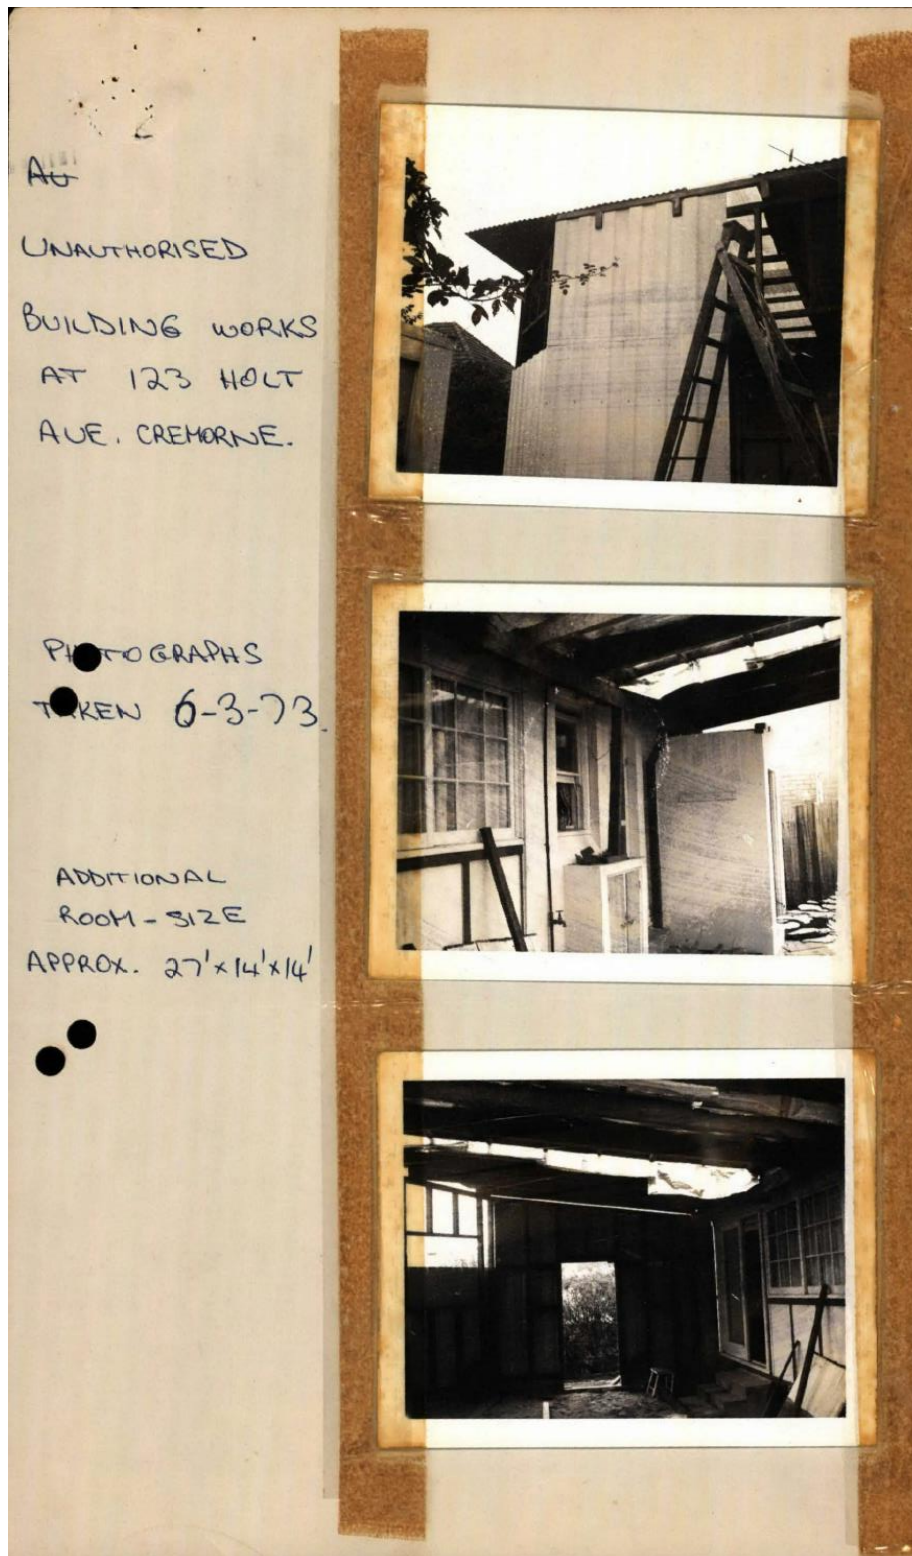 AU
UNAUTHORISED
BUILDING WORKS
AT 123 HOLT
AVE. CREMORNE.
PHOTOGRAPHS
TAKEN 6-3-73.
ADDITIONAL
ROOM-SIZE
APPROX. 27'x14'x14'